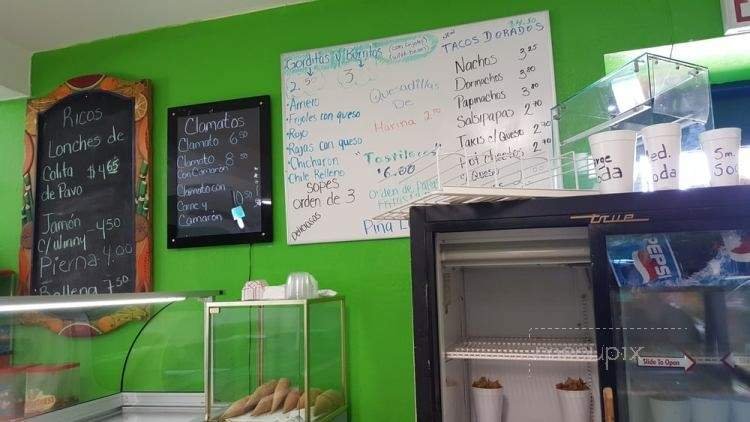 Ricos
Lonches de
Colita $4.65
de Pavo
Jamón 4.50
Pierna 4.00
Ballena 7.50
Clamatos
Clamato 6.50
Clamato 8.50
Con Camarón
Clamato con
Carne y 10.50
Camarón
Gorditas y Burritos
(con frijoles)
(with beans)
3.
Frijoles con queso
Rojo
Rajas con queso
Chicharon
Chile Relleno
Sopes
orden de 3
Deliciosos
Quesadillas
De
Harina 2.00
"Tostilocos"
$6.00
Orden de Papa
Piña L
$4.50
TACOS DORADOS
Nachos 3.25
Dormachos 3.00
Papinachos 3.00
Salsipapas 2.70
Takis c/ Queso 2.70
Hot cheetos
c/ Queso
Large
Soda
Med.
Soda
Sm.
So
true
PEPSI
Slide To Open
menupix